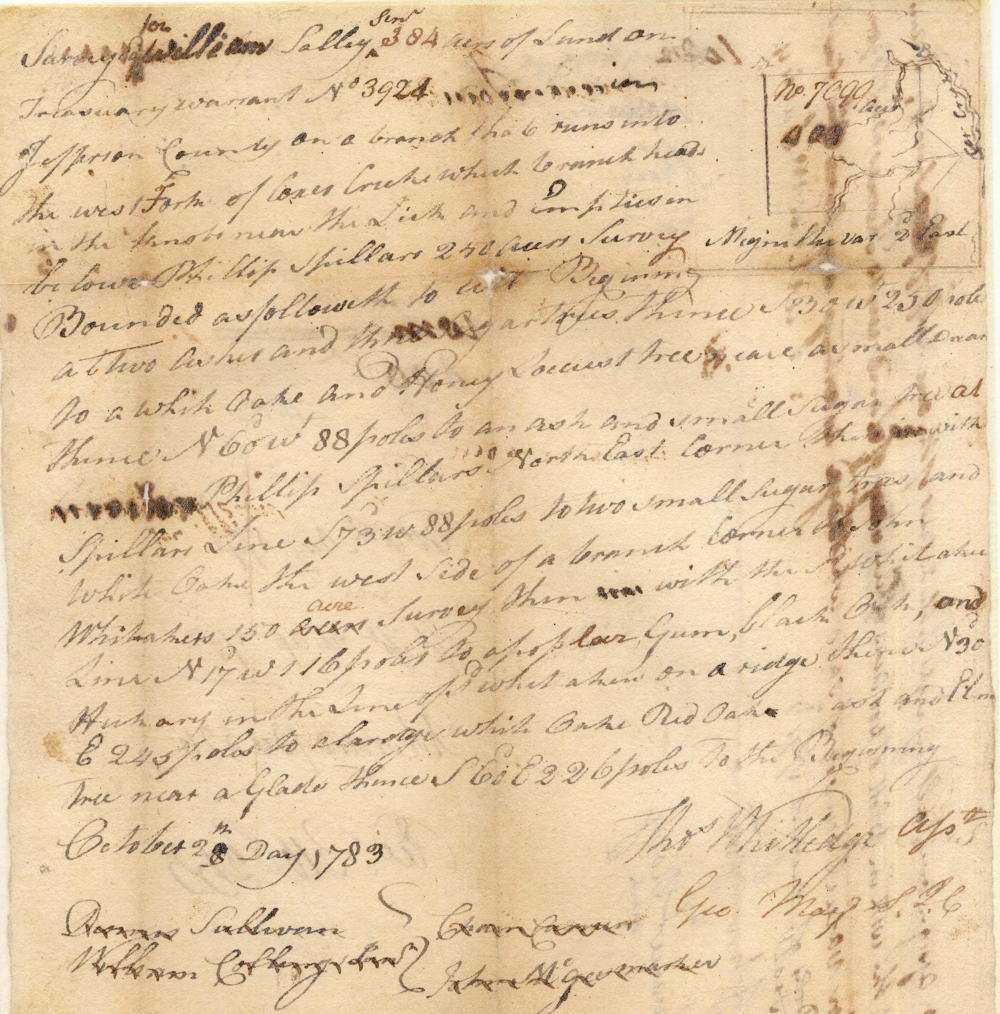 Survey'd for William Salley Sen.r 384 acrs of Land on
Treasuary warrant No 3924 in
Jefferson County on a branch that runs into
the west Fork of Coxes Creeke which branch heads
in the knobs near the Lick and Empties in
below Phillip Spillars 240 acers Survey
Bounded as followeth to wit Beginning
at Two ashes and three Sugartrees Thence S 30 W 250 pole
to a whit Oake and Honey Locust tree neare a small Drean
thence N 60 W 88 poles to an ash and small Sugar tree at
Phillip Spillars North East Corner thence with
Spillars Line S 73 W 88 poles to two small Sugar trees and
whit Oake the west Side of a branch Corner to John
Whitakers 150 acre Survey then with the Sd whitaker
Line N 17 W 116 poles to a poplar, Gum, black Oak, and
Hickary in the Line of Sd whitaker on a ridge thence N 30
E 245 poles to a large whit Oake Red Oake ash and Elm
tree near a Glade thence S 60 E 226 poles to the Beginning
October 28th Day 1783
Thos Whitledge Asst
Geo. May S.J.C
Dennis Sullivan
William Collings
John McGee marker
No. 7099
400 acrs
Magnitik var 2d East